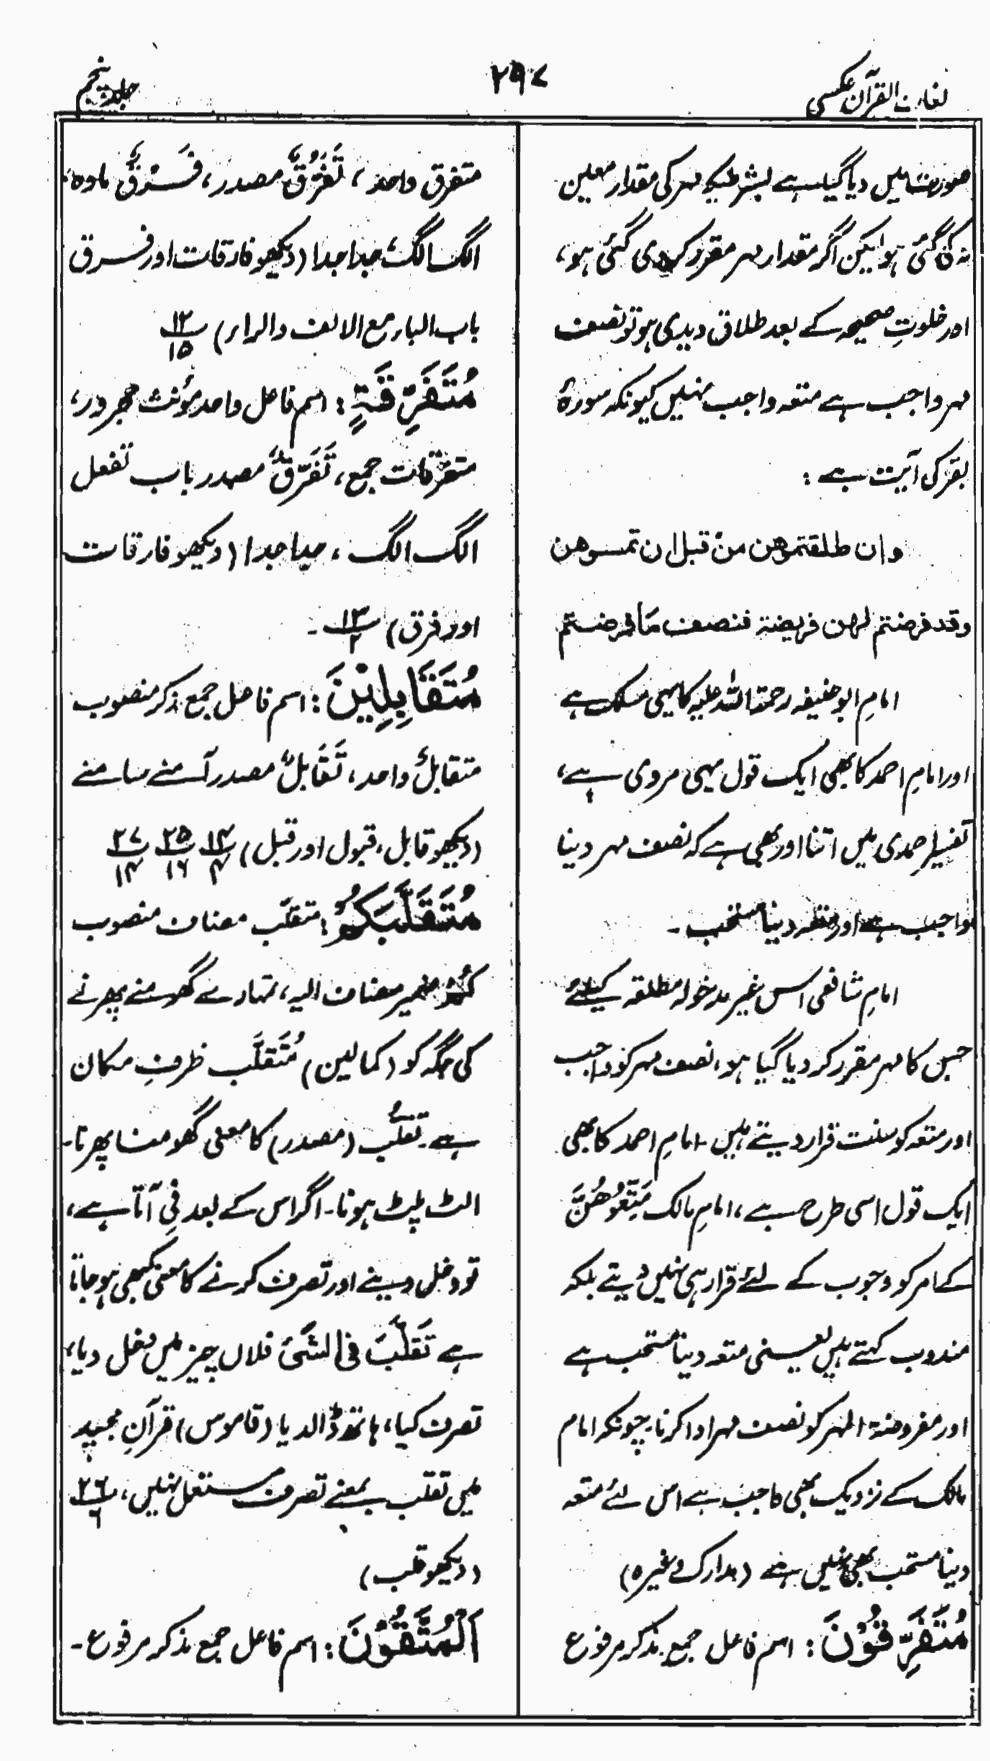 لغات القرآن عکسی
۲۹۷
جلد پنجم
صورت میں دیا گیا ہے بشرطیکہ مہر کی مقدار معین
نہ کی گئی ہو لیکن اگر مقدار مہر مقرر کر دی گئی ہو،
اور خلوتِ صحیحہ کے بعد طلاق دیدی ہو تو نصف
مہر واجب ہے متعہ واجب نہیں کیونکہ سورۂ
بقر کی آیت ہے :
وان طلقتموهن من قبل ان تمسوهن
وقد فرضتم لهن فريضة فنصف ما فرضتم
امامِ ابو حنیفہ رحمۃ اللہ علیہ کا یہی مسلک ہے
اور امام احمد کا بھی ایک قول یہی مروی ہے،
تفسیر احمدی میں اتنا اور بھی ہے کہ نصف مہر دینا
واجب ہے اور متعہ دینا مستحب ۔
امام شافعی اس غیر مدخولہ مطلقہ کیلئے
جس کا مہر مقرر کر دیا گیا ہو، نصف مہر کو واجب
اور متعہ کو سنت قرار دیتے ہیں ۔ امام احمد کا بھی
ایک قول اسی طرح ہے، امام مالک مَتِّعُوْهُنَّ
کے امر کو وجوب کے لئے قرار ہی نہیں دیتے بلکہ
مندوب کہتے ہیں یعنی متعہ دینا مستحب ہے
اور مفروضۃ المہر کو نصف مہر ادا کرنا۔ چونکہ امام
مالک کے نزدیک بھی واجب ہے اس لئے متعہ
دینا مستحب بھی نہیں ہے (مدارک وغیرہ)
مُتَفَرِّقُوْنَ : اسم فاعل جمع مذکر مرفوع
متفرق واحد، تَفَرُّقٌ مصدر، فَرْقٌ مادہ،
الگ الگ، جدا جدا (دیکھو فارقات اور فرق
باب الباء مع الالف والراء) ۱۲/۱۵
مُتَفَرِّقَةٍ : اسم فاعل واحد مؤنث مجرور،
متفرقات جمع، تَفَرُّقٌ مصدر باب تفعل
الگ الگ ، جدا جدا (دیکھو فارقات
اور فرق) ۱۳/۲ ۔
مُتَقَابِلِيْنَ : اسم فاعل جمع مذکر منصوب
متقابلٌ واحد، تَقَابُلٌ مصدر آمنے سامنے
(دیکھو قابل، قبول اور قبل) ۱۴/۴ ۲۵/۱۶ ۲۷/۱۴
مُتَقَلَّبَكُمْ : متقلّب مضاف منصوب
كُمْ ضمیر مضاف الیہ، تمہارے گھومنے پھرنے
کی جگہ کو (کمالین) مُتَقَلَّب ظرفِ مکان
ہے ۔ تقلُّب (مصدر) کا معنی گھومنا پھرنا۔
الٹ پلٹ ہونا۔ اگر اس کے بعد فِی آتا ہے،
تو دخل دینے اور تصرف کرنے کا معنی بھی ہو جاتا
ہے تَقَلَّبَ فی الشَّیْٔ فلاں چیز میں دخل دیا،
تصرف کیا، ہاتھ ڈالدیا (قاموس) قرآنِ مجید
میں تقلب بمعنے تصرف مستعمل نہیں، ۲۶/۶
(دیکھو قلب)
اَلْمُتَّقُوْنَ : اسم فاعل جمع مذکر مرفوع ۔